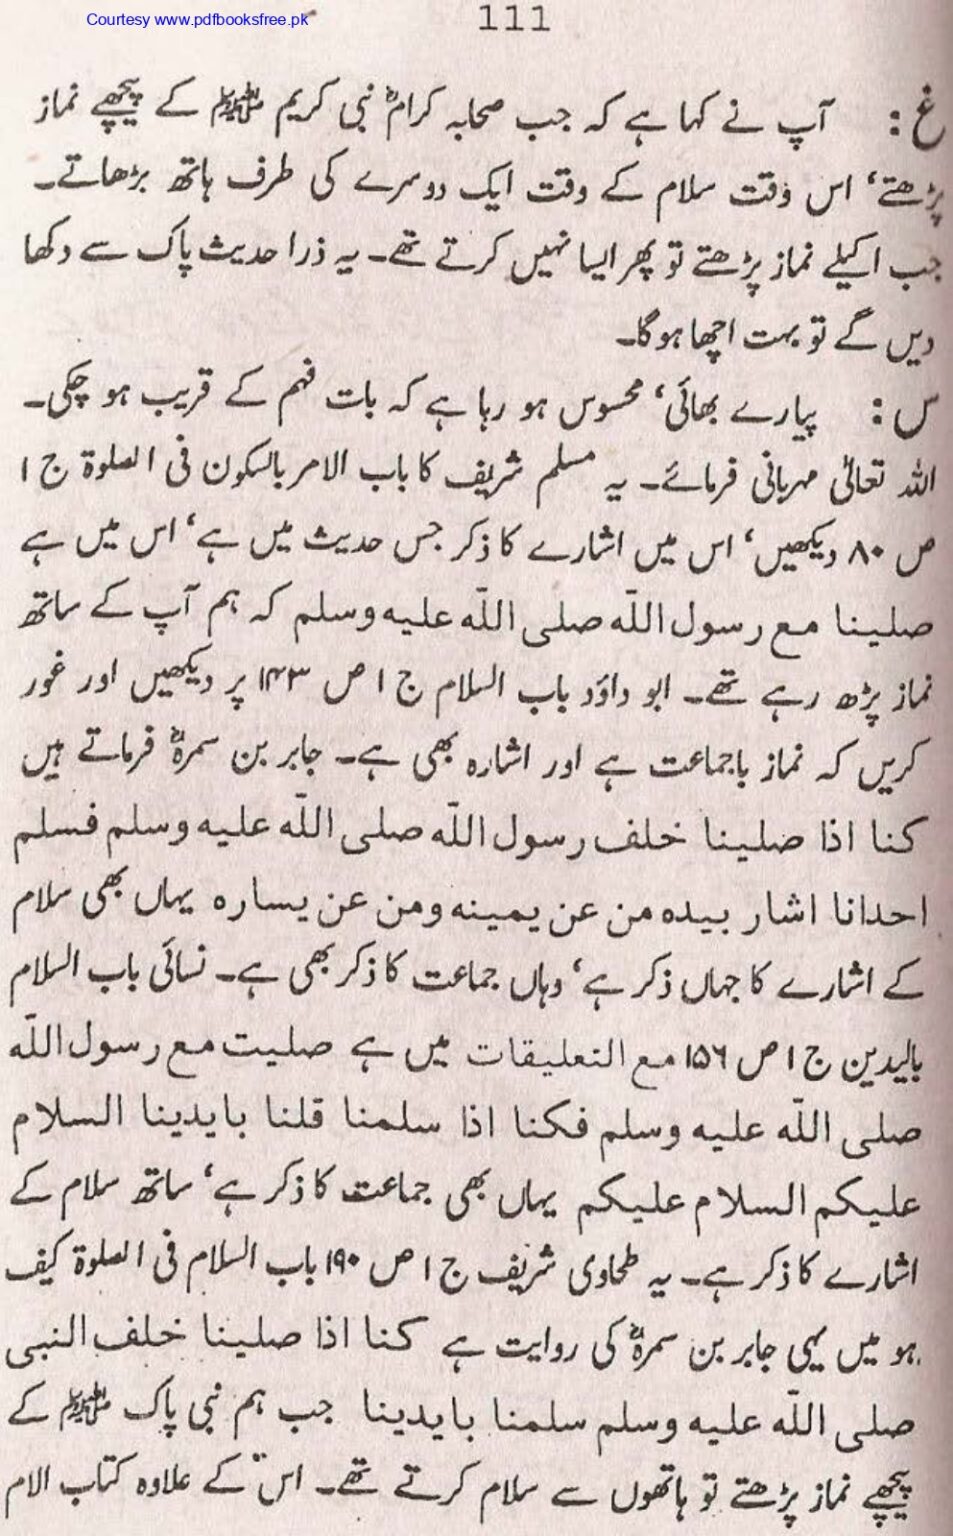 Courtesy www.pdfbooksfree.pk
111
غ : آپ نے کہا ہے کہ جب صحابہ کرامؓ نبی کریم ﷺ کے پیچھے نماز
پڑھتے‘ اس وقت سلام کے وقت ایک دوسرے کی طرف ہاتھ بڑھاتے۔
جب اکیلے نماز پڑھتے تو پھر ایسا نہیں کرتے تھے۔ یہ ذرا حدیث پاک سے دکھا
دیں گے تو بہت اچھا ہوگا۔
س : پیارے بھائی‘ محسوس ہو رہا ہے کہ بات فہم کے قریب ہو چکی۔
اللہ تعالیٰ مہربانی فرمائے۔ یہ مسلم شریف کا باب الامر بالسکون فی الصلوۃ ج ۱
ص ۸۰ دیکھیں‘ اس میں اشارے کا ذکر جس حدیث میں ہے‘ اس میں ہے
صلینا مع رسول اللہ صلی اللہ علیہ وسلم کہ ہم آپ کے ساتھ
نماز پڑھ رہے تھے۔ ابو داؤد باب السلام ج ۱ ص ۱۴۳ پر دیکھیں اور غور
کریں کہ نماز باجماعت ہے اور اشارہ بھی ہے۔ جابر بن سمرہؓ فرماتے ہیں
کنا اذا صلینا خلف رسول اللہ صلی اللہ علیہ وسلم فسلم
احدانا اشار بیدہ من عن یمینہ ومن عن یسارہ یہاں بھی سلام
کے اشارے کا جہاں ذکر ہے‘ وہاں جماعت کا ذکر بھی ہے۔ نسائی باب السلام
بالیدین ج ۱ ص ۱۵۶ مع التعلیقات میں ہے صلیت مع رسول اللہ
صلی اللہ علیہ وسلم فکنا اذا سلمنا قلنا بایدینا السلام
علیکم السلام علیکم یہاں بھی جماعت کا ذکر ہے‘ ساتھ سلام کے
اشارے کا ذکر ہے۔ یہ طحاوی شریف ج ۱ ص ۱۹۰ باب السلام فی الصلوۃ کیف
ہو میں یہی جابر بن سمرہؓ کی روایت ہے کنا اذا صلینا خلف النبی
صلی اللہ علیہ وسلم سلمنا بایدینا جب ہم نبی پاک ﷺ کے
پیچھے نماز پڑھتے تو ہاتھوں سے سلام کرتے تھے۔ اس کے علاوہ کتاب الام